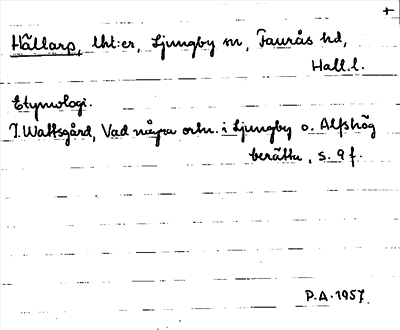 Hällarp, lht:er, Ljungby sn, Faurås hd,
Hall.l.
Etymologi.
J. Wattsgård, Vad några ortn. i Ljungby o. Alfshög
berätta, s. 9 f.
P.A. 1957.